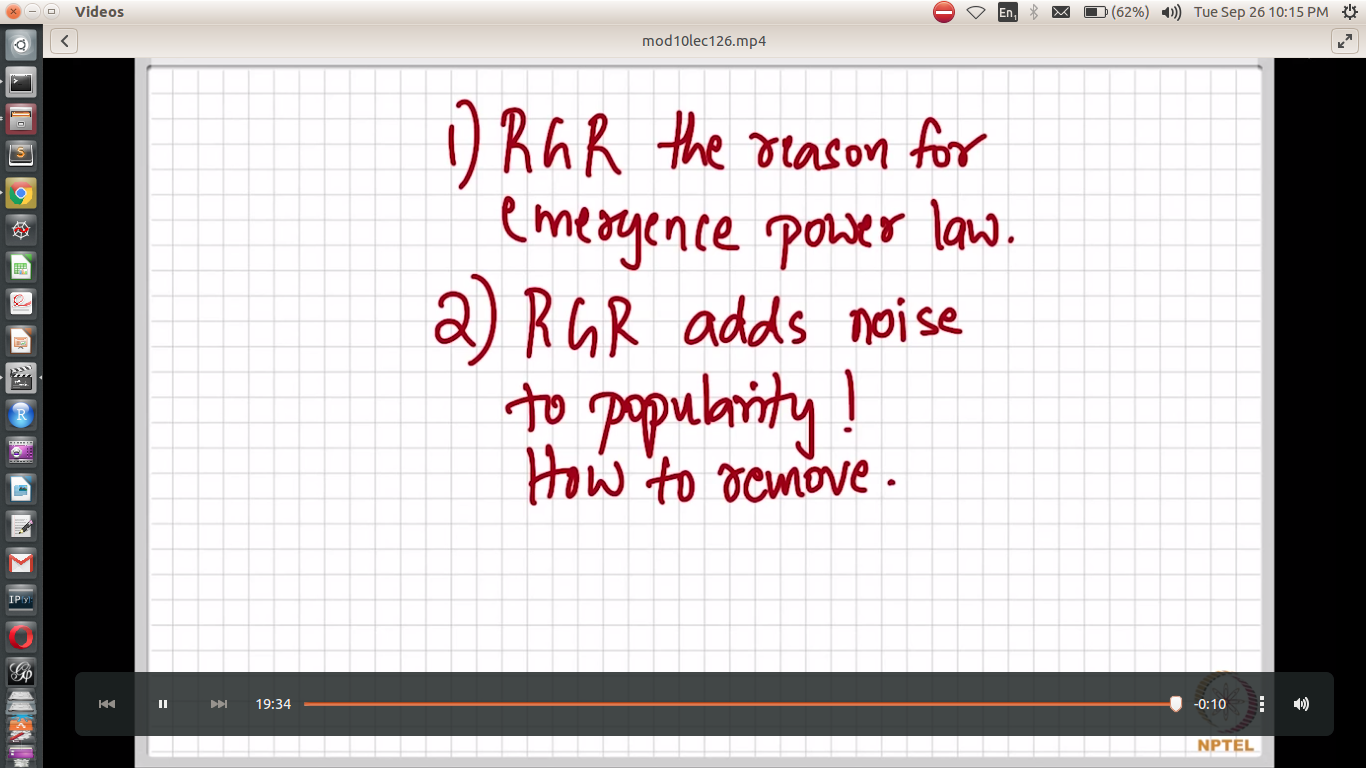 Videos
En1
(62%)
Tue Sep 26 10:15 PM
mod10lec126.mp4
1) RGR the reason for
emergence power law.
2) RGR adds noise
to popularity!
How to remove.
19:34
-0:10
NPTEL